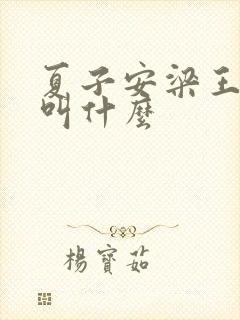 夏子安梁王
叫什麼
楊寶茹